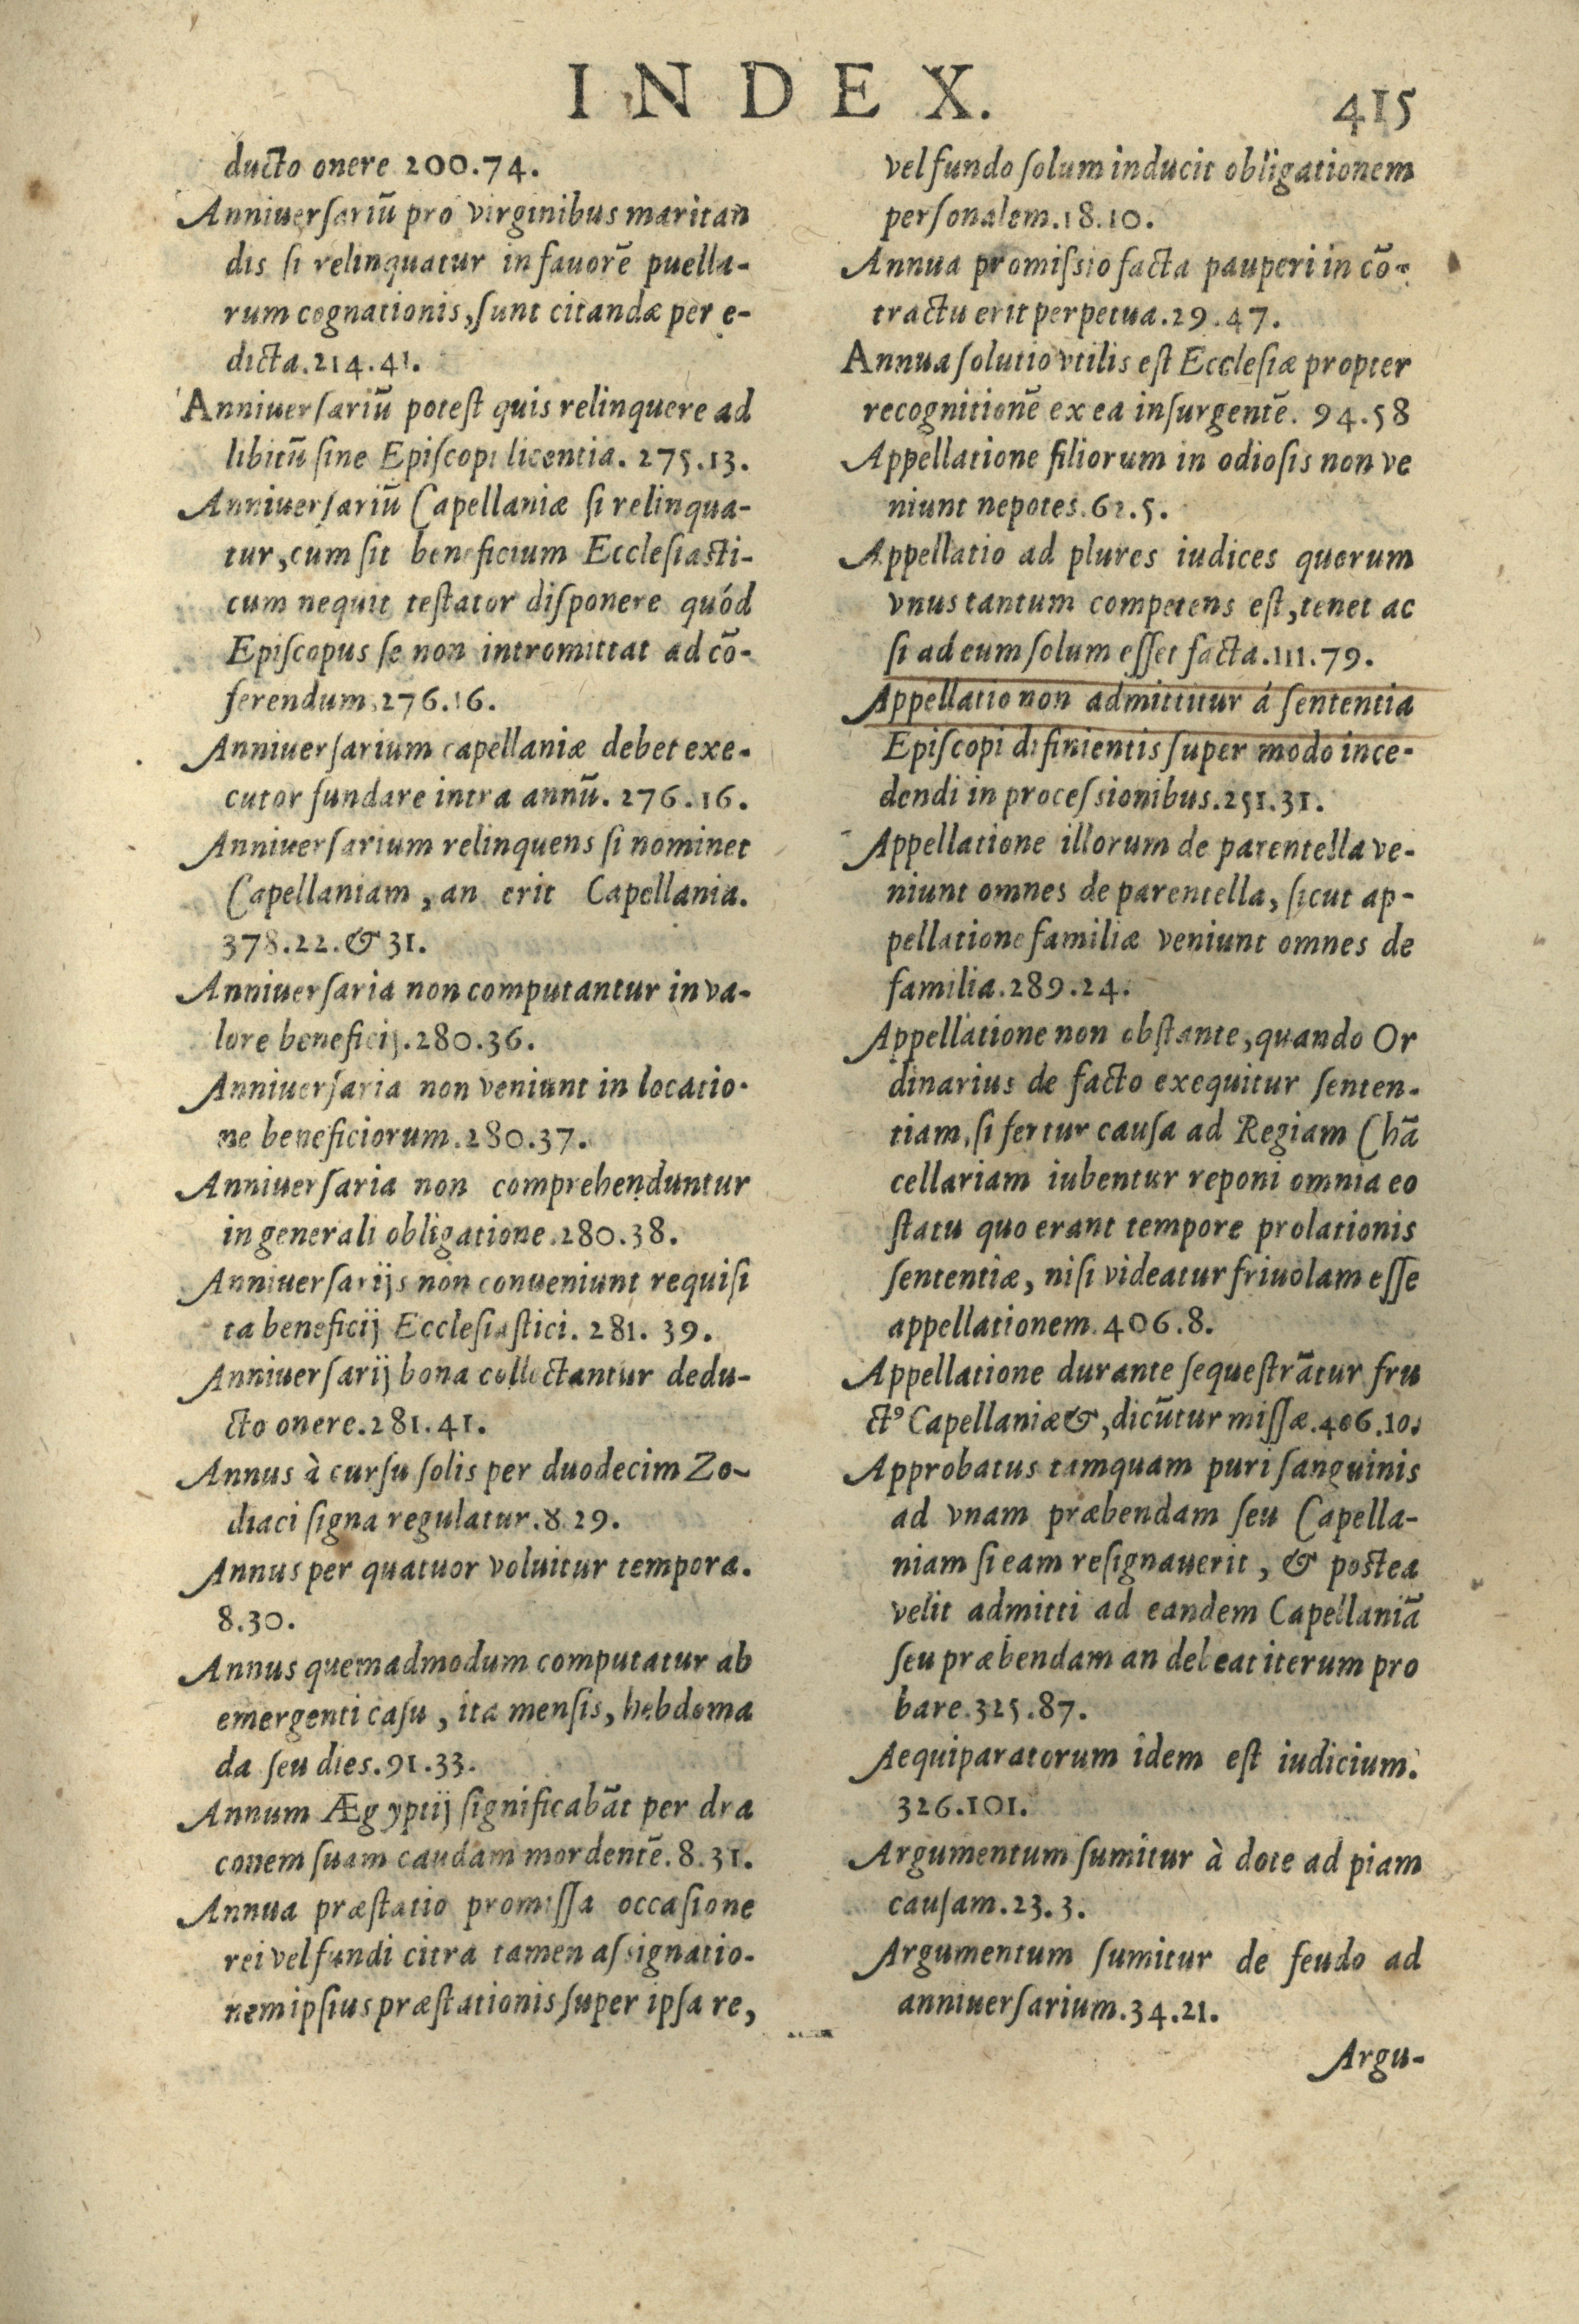 INDEX. 415
ducto onere 200.74.
Anniuersariū pro virginibus maritan
dis si relinquatur in fauorē puella-
rum cognationis, sunt citandæ per e-
dicta.214.41.
Anniuersariū potest quis relinquere ad
libitū sine Episcopi licentia. 275.13.
Anniuersariū Capellaniæ si relinqua-
tur, cum sit beneficium Ecclesiasti-
cum nequit testator disponere quód
Episcopus se non intromittat ad cō-
ferendum.276.16.
Anniuersarium capellaniæ debet exe-
cutor fundare intra annū. 276.16.
Anniuersarium relinquens si nominet
Capellaniam, an erit Capellania.
378.22.& 31.
Anniuersaria non computantur in va-
lore beneficij.280.36.
Anniuersaria non veniunt in locatio-
ne beneficiorum.280.37.
Anniuersaria non comprehenduntur
in generali obligatione.280.38.
Anniuersarijs non conueniunt requisi
ta beneficij Ecclesiastici. 281. 39.
Anniuersarij bona collectantur dedu-
cto onere.281.41.
Annus à cursu solis per duodecim Zo-
diaci signa regulatur.8.29.
Annus per quatuor voluitur tempora.
8.30.
Annus quemadmodum computatur ab
emergenti casu, ita mensis, hebdoma
da seu dies.91.33.
Annum Ægyptij significabāt per dra
conem suam caudam mordentē.8.31.
Annua præstatio promissa occasione
rei vel fundi citra tamen assignatio-
nem ipsius præstationis super ipsa re,
vel fundo solum inducit obligationem
personalem.18.10.
Annua promissio facta pauperi in cō-
tractu erit perpetua.29.47.
Annua solutio vtilis est Ecclesiæ propter
recognitionē ex ea insurgentē. 94.58
Appellatione filiorum in odiosis non ve
niunt nepotes.62.5.
Appellatio ad plures iudices quorum
vnus tantum competens est, tenet ac
si ad eum solum esset facta.111.79.
Appellatio non admittitur á sententia
Episcopi difinientis super modo ince-
dendi in processionibus.251.31.
Appellatione illorum de parentella ve-
niunt omnes de parentella, sicut ap-
pellatione familiæ veniunt omnes de
familia.289.24.
Appellatione non obstante, quando Or
dinarius de facto exequitur senten-
tiam, si fertur causa ad Regiam Chā
cellariam iubentur reponi omnia eo
statu quo erant tempore prolationis
sententiæ, nisi videatur friuolam esse
appellationem.406.8.
Appellatione durante sequestrātur fru
ctꝰ Capellaniæ &, dicūtur missæ.406.10.
Approbatus tamquam puri sanguinis
ad vnam præbendam seu Capella-
niam si eam resignauerit, & postea
velit admitti ad eandem Capellaniā
seu præbendam an debeat iterum pro
bare.325.87.
Aequiparatorum idem est iudicium.
326.101.
Argumentum sumitur à dote ad piam
causam.23.3.
Argumentum sumitur de feudo ad
anniuersarium.34.21.
Argu-